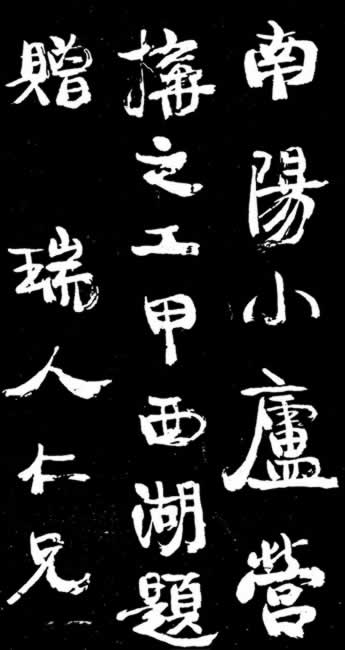 南陽小廬營
搆之工甲西湖題
贈 瑞人仁兄